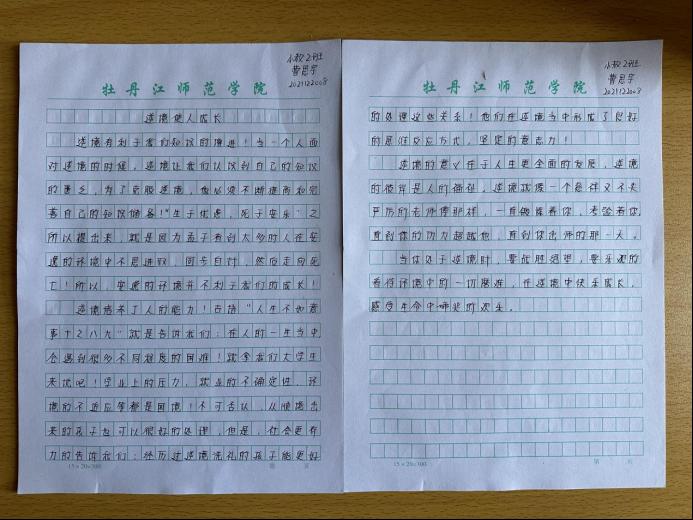 小教2班
曹思宇
2021122008
牡丹江师范学院
逆境使人成长
逆境有利于我们知识的增进！当一个人面
对逆境的时候，逆境让我们认识到自己的知识
的匮乏，为了克服逆境，他必须不断提高和完
善自己的知识储备！“生于忧患，死于安乐”之
所以提出来，就是因为孟子看到太多的人在安
逸的环境中不思进取，固步自封，然后走向死
亡！所以，安逸的环境并不利于我们的成长！
逆境培养了人的能力！古语“人生不如意
事十之八九”就是告诉我们：在人的一生当中
会遇到很多不同程度的困难！就拿我们大学生
来说吧！学业上的压力，就业的不确定性，环
境的不适应等都是困境！不可否认，从顺境出
来的孩子也可以很好的处理，但是，社会更有
力的告诉我们：经历过逆境洗礼的孩子能更好
15×20=300
第 页
小教2班
曹思宇
2021122008
牡丹江师范学院
的处理这些关系！他们在逆境当中形成了良好
的思维反应方式，坚定的意志力！
逆境的意义在于人生更全面的发展，逆境
的彼岸是人的福祉，逆境就像一个慈祥又不失
严厉的老师傅那样，一直锻炼着你，考验着你，
直到你的功力超越他，直到你出师的那一天。
当你处于逆境时，要依胜绝望，要乐观的
看待环境中的一切磨难，在逆境中快乐成长，
感受生命中喷发的欢乐。
15×20=300
第 页